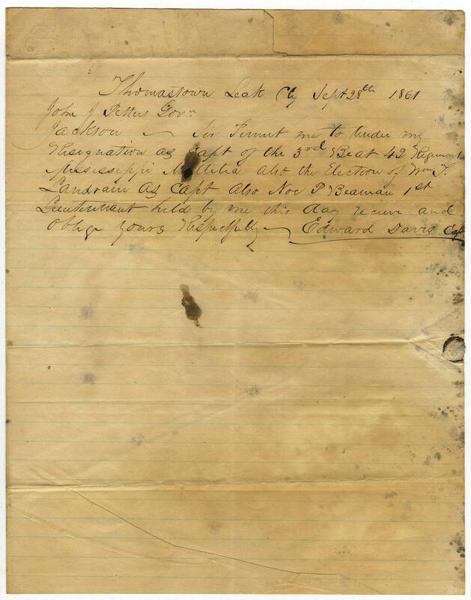 Thomastown Leak Cty Sept 28th 1861
John J Pettus Gov.
Jackson Sir Permit me to tender my
Resignation as Capt of the 3rd Beat 42 Regiment
Mississippi Militia also the Election of Wm F.
Landrain as Capt also Noe P Beaman 1st
Lieutenant held by me this day receive and
oblige yours Respectfully Edward Davis Capt